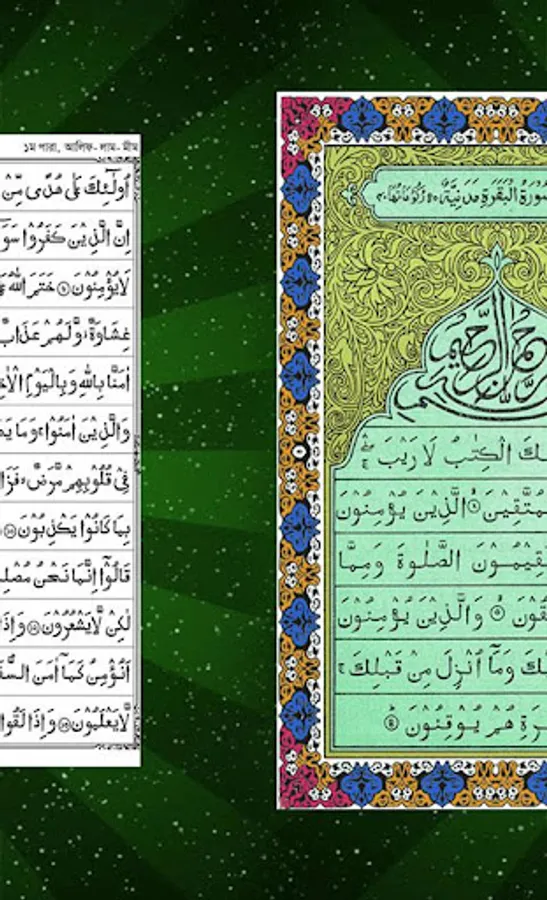 ১ম পারা, আলিফ- লাম- মীম
اُولٰٓئِكَ عَلٰى هُدًى مِّنْ
اِنَّ الَّذِيْنَ كَفَرُوْا سَوَآ
لَايُؤْمِنُوْنَ ۶ خَتَمَ اللّٰهُ
غِشَاوَةٌ وَّلَهُمْ عَذَابٌ
اٰمَنَّا بِاللّٰهِ وَبِالْيَوْمِ الْاٰخِ
وَالَّذِيْنَ اٰمَنُوْا وَمَا يَخ
فِيْ قُلُوْبِهِمْ مَّرَضٌ فَزَا
بِمَا كَانُوْا يَكْذِبُوْنَ ۱۰
قَالُوْٓا اِنَّمَا نَحْنُ مُصْلِ
لٰكِنْ لَّايَشْعُرُوْنَ ۱۲ وَاِذَا
اَنُؤْمِنُ كَمَآ اٰمَنَ السُّفَ
لَّايَعْلَمُوْنَ ۱۳ وَاِذَا لَقُوا
سُوْرَةُ الْبَقَرَةِ مَدَنِيَّةٌ
لِكَ الْكِتٰبُ لَا رَيْبَ ج
لْمُتَّقِيْنَ ۲ الَّذِيْنَ يُؤْمِنُوْنَ
يُقِيْمُوْنَ الصَّلٰوةَ وَمِمَّا
فِقُوْنَ ۳ وَالَّذِيْنَ يُؤْمِنُوْنَ
يْكَ وَمَآ اُنْزِلَ مِنْ قَبْلِكَ ج
خِرَةِ هُمْ يُوْقِنُوْنَ ۴